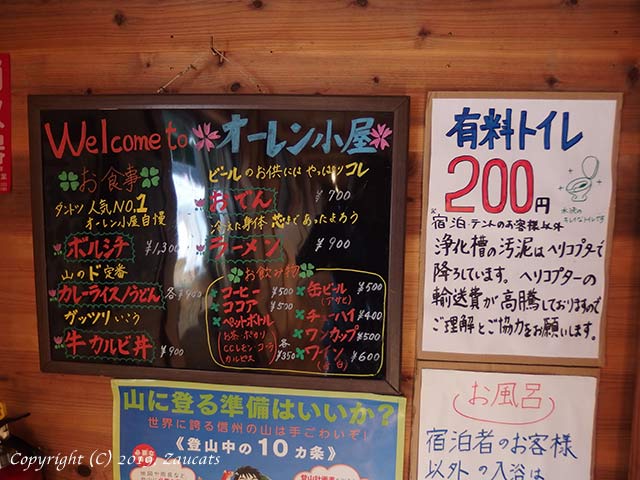 Welcome to オーレン小屋
お食事
ダントツ人気NO.1
オーレン小屋自慢
ボルシチ ¥1,300
山のド定番
カレーライス/うどん 各¥900
ガッツリいこう
牛カルビ丼 ¥900
ビールのお供には やっぱりコレ
おでん ¥700
冷えた身体 芯まであったまろう
ラーメン ¥900
お飲み物
コーヒー ¥500
ココア ¥500
ペットボトル
お茶・ポカリ
CCレモン・コーラ
カルピス
各¥350
缶ビール ¥500
(アサヒ)
チューハイ ¥400
ワンカップ ¥500
ワイン ¥600
(赤・白)
有料トイレ
200円
水洗の
キレイなトイレです
※宿泊・テントのお客様以外
浄化槽の汚泥はヘリコプターで
降ろしています。ヘリコプターの
輸送費が高騰しておりますので
ご理解とご協力をお願いします。
お風呂
宿泊者のお客様
以外の入浴は
山に登る準備はいいか?
世界に誇る信州の山は手ごわいぞ!
《登山中の10ヵ条》
必要な
登山計画書
Copyright (C) 2019 Zaucats